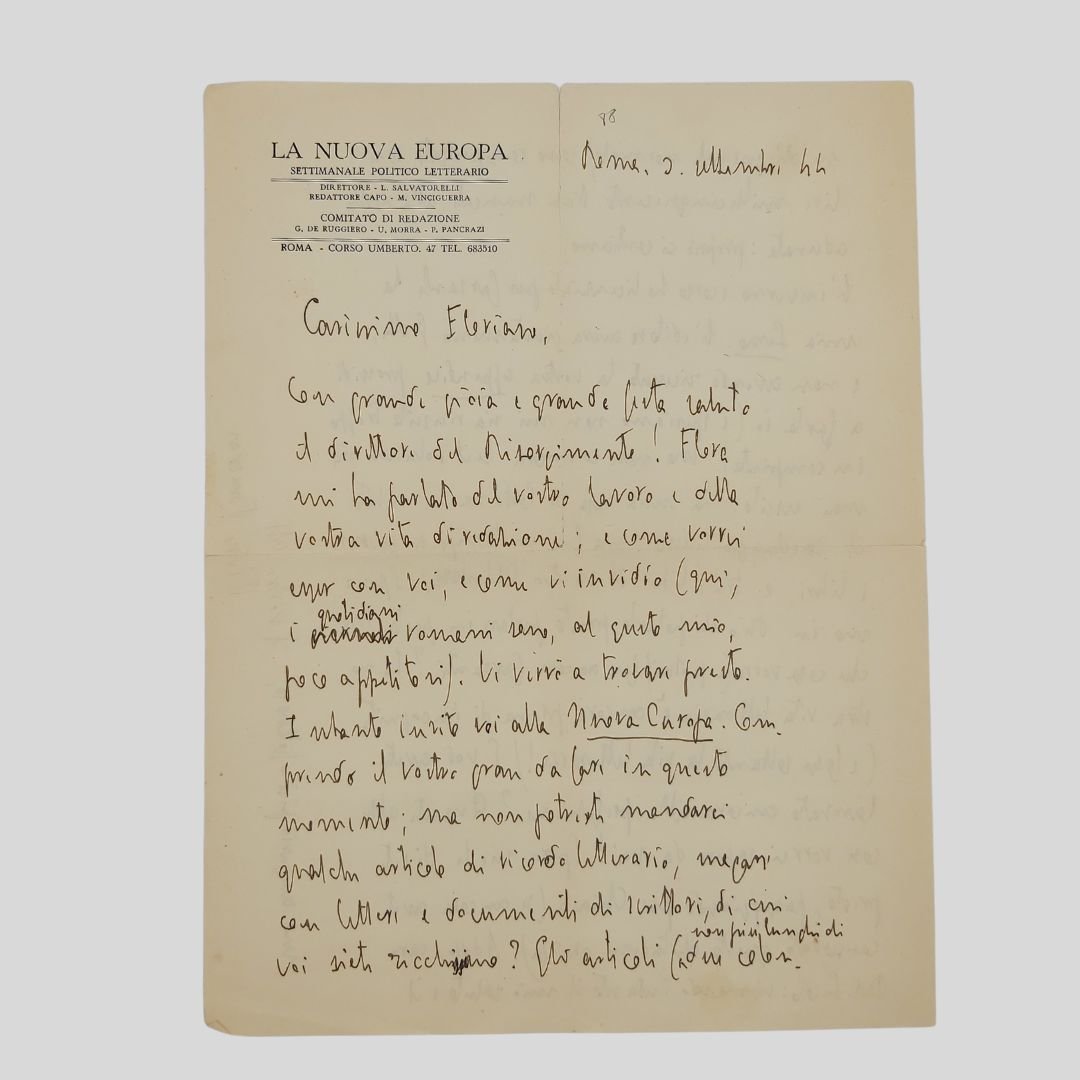 88
LA NUOVA EUROPA
SETTIMANALE POLITICO LETTERARIO
DIRETTORE - L. SALVATORELLI
REDATTORE CAPO - M. VINCIGUERRA
COMITATO DI REDAZIONE
G. DE RUGGIERO - U. MORRA - P. PANCRAZI
ROMA - CORSO UMBERTO. 47 TEL. 683510
Roma. settembre 44
Carissimo Floriano,
Con grande gioia e grande festa saluto
il direttore del Risorgimento! Flora
mi ha parlato del vostro lavoro e della
vostra vita di redazione; e come vorrei
esser con voi, e come vi invidio (qui,
quotidiani
i romani sono, al gusto mio,
poco appetitosi). Vi verrò a trovare presto.
Intanto invito voi alla Nuova Europa. Com-
prendo il vostro gran da fare in questo
momento; ma non potresti mandarci
qualche articolo di ricordo letterario, magari
con lettere e documenti di scrittori, di cui
non più lunghi di
voi siete ricchissimo? Gli articoli (due colon-